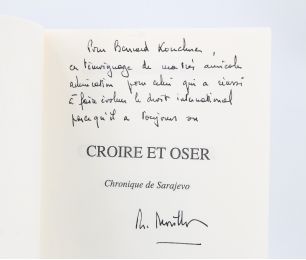 Pour Bernard Kouchner,
en témoignage de ma très amicale
admiration pour celui qui a réussi
à faire évoluer le droit international
parce qu'il a toujours osé
CROIRE ET OSER
Chronique de Sarajevo
Ph. Morillon